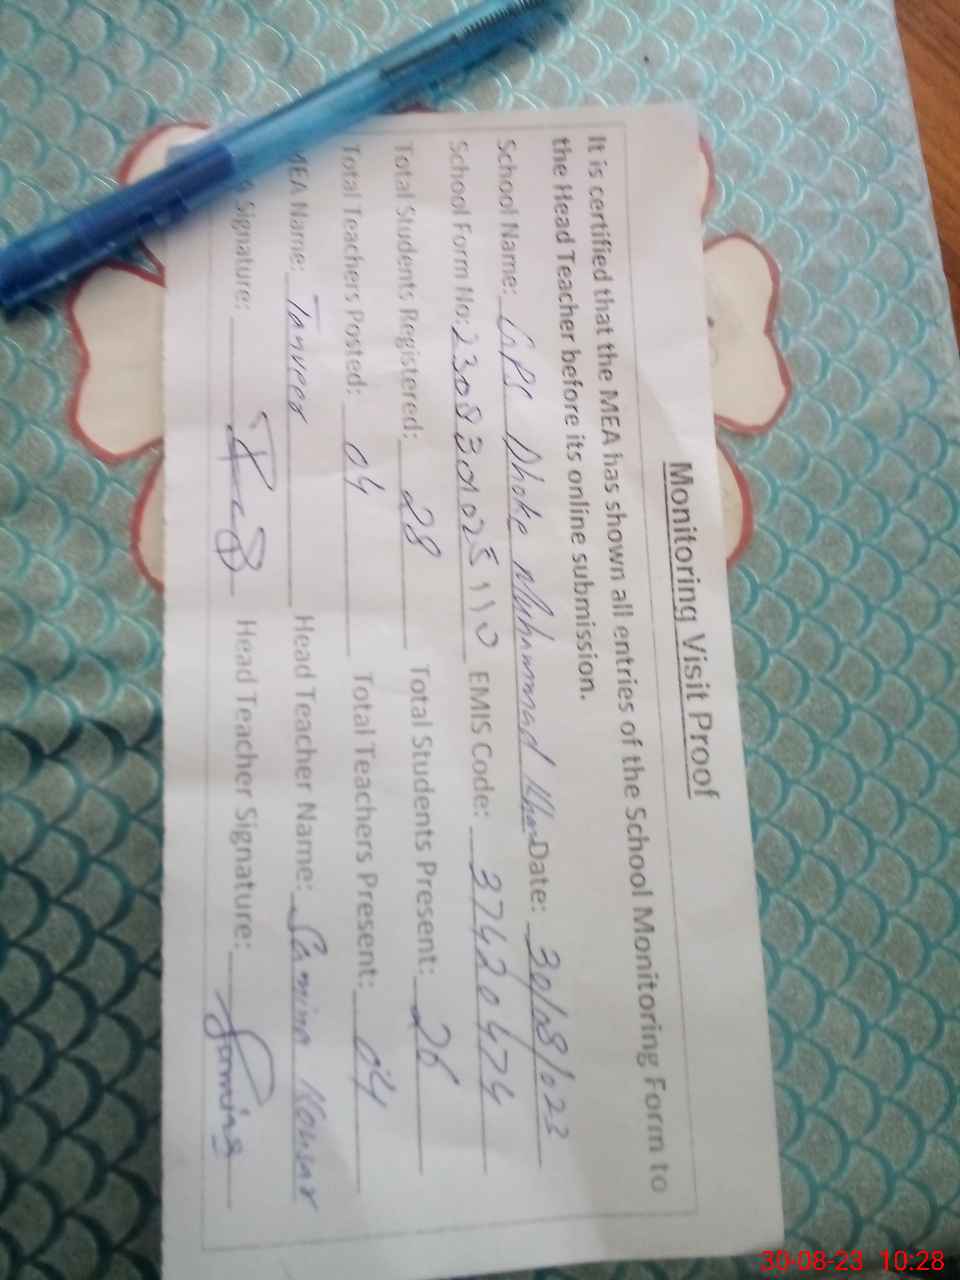 Monitoring Visit Proof
It is certified that the MEA has shown all entries of the School Monitoring Form to
the Head Teacher before its online submission.
School Name: GPS Dhoke Muhammad Khan Date: 30/08/023
School Form No: 2308301025110 EMIS Code: 37420474
Total Students Registered: 28 Total Students Present: 26
Total Teachers Posted: 04 Total Teachers Present: 04
MEA Name: Tanveer Head Teacher Name: Samina Kousar
Signature: Head Teacher Signature: Samina
30-08-23 10:28